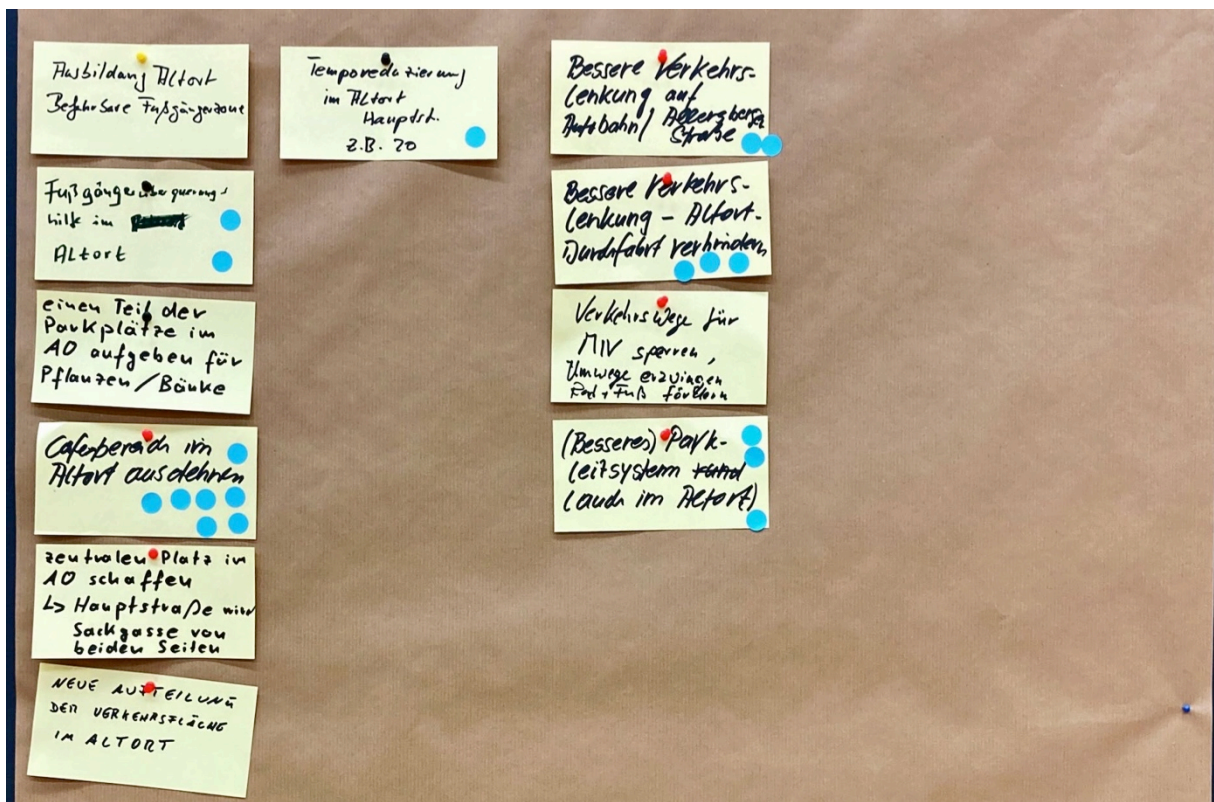 Ausbildung Altort
Befahrbare Fußgängerzone
Fußgängerüberquerungs-
hilfe im
Altort
einen Teil der
Parkplätze im
AO aufgeben für
Pflanzen/Bänke
Cafébereich im
Altort ausdehnen
zentralen Platz im
AO schaffen
↳ Hauptstraße wird
Sackgasse von
beiden Seiten
NEUE AUFTEILUNG
DER VERKEHRSFLÄCHE
IM ALTORT
Temporeduzierung
im Altort
Hauptst.
z.B. 20
Bessere Verkehrs-
lenkung auf
Autobahn/
Straße
Bessere Verkehrs-
lenkung - Altort-
Durchfahrt verhindern
Verkehrswege für
MIV sperren,
Umwege erzwingen
Rad + Fuß fördern
(Besseres) Park-
leitsystem rund
(auch im Altort)